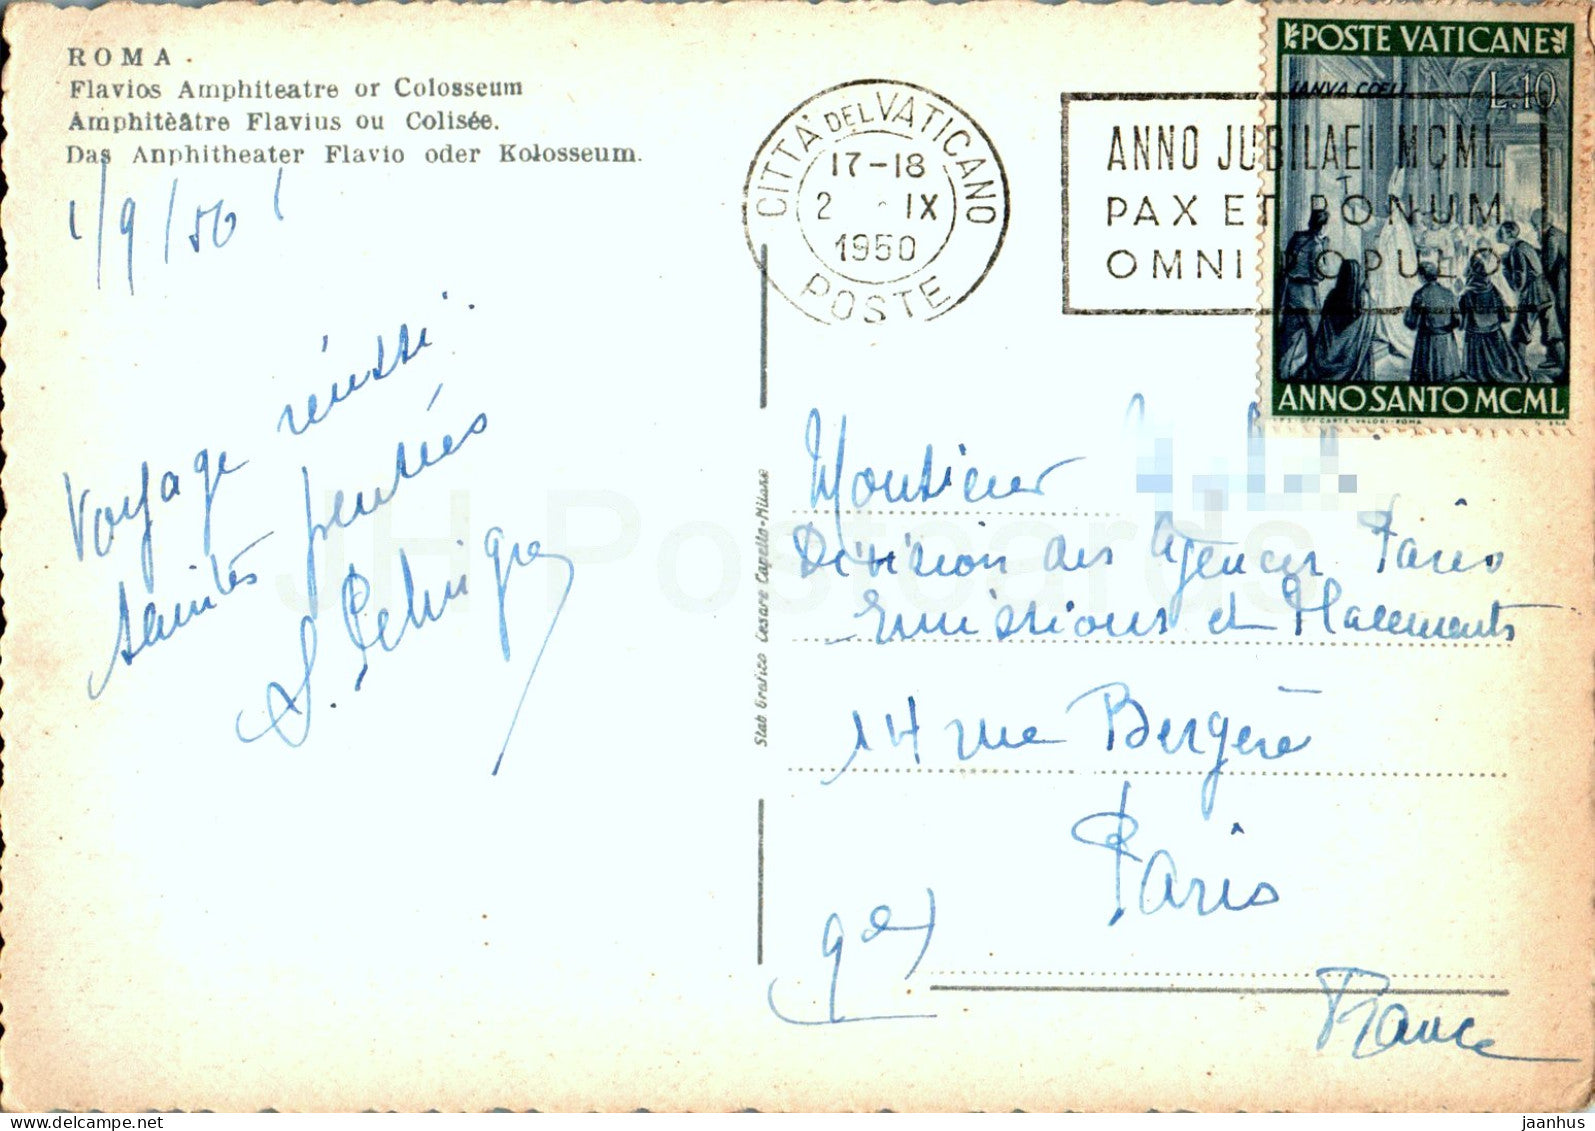 ROMA
Flavios Amphiteatre or Colosseum
Amphitèâtre Flavius ou Colisée.
Das Anphitheater Flavio oder Kolosseum.
1/9/50
Voyage réussi.
saintes pensées
CITTA' DEL VATICANO
17-18
2 IX
1950
POSTE
ANNO JUBILAEI MCML
PAX ET BONUM
OMNI POPULO
POSTE VATICANE
IANVA COELI
L.10
ANNO SANTO MCML
I.P.S. OFF. CARTE VALORI-ROMA
Stab Grafico Cesare Capello-Milano
Monsieur
Division des Agences Paris
Emissions et Placements
14 rue Bergère
Paris
9e
France
JH Postcards
www.delcampe.net
jaanhus